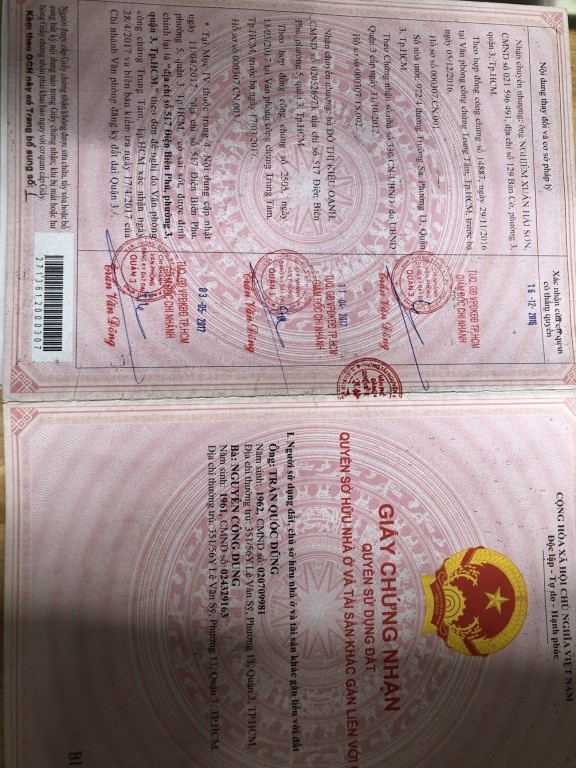 Nội dung thay đổi và cơ sở pháp lý
Xác nhận của cơ quan
có thẩm quyền
Nhận chuyển nhượng: ông NGHIÊM XUÂN HẢI SƠN,
CMND số 021 596 491, địa chỉ số 129 Bàn Cờ, phường 3,
quận 3, Tp.HCM.
Theo hợp đồng công chứng số 14887, ngày 29/11/2016
tại Văn phòng công chứng Trung Tâm, Tp.HCM, trước bạ
ngày 05/12/2016.
Hồ sơ số 000307.CN.001.
Số nhà mới: 972/4 đường Trường Sa, Phường 13, Quận
3, Tp.HCM.
Theo Chứng nhận số nhà số 336/CN-UBND do UBND
Quận 3 cấp ngày 31/10/2012.
Hồ sơ số: 000307.TS.002.
16-12-2016
TUQ. GĐ VPĐKĐĐ TP.HCM
GIÁM ĐỐC CHI NHÁNH
QUẬN 3
Trần Văn Đông
Nhận chuyển nhượng: bà ĐỖ THỊ KIỀU OANH,
CMND số 020526978, địa chỉ số 517 Điện Biên
Phủ, phường 5, quận 3, Tp.HCM.
Theo hợp đồng công chứng số 2505, ngày
13/03/2017 tại Văn phòng công chứng Trung Tâm,
Tp.HCM, trước bạ ngày 17/03/2017.
Hồ sơ số: 000307.CN.003.
04-2017
TUQ. GĐ VPĐKĐĐ TP.HCM
GIÁM ĐỐC CHI NHÁNH
QUẬN 3
Trần Văn Đông
* Tại Mục IV thuộc trang 4, Nội dung cập nhật
ngày 11/04/2017: "địa chỉ số 517 Điện Biên Phủ,
phường 5, quận 3, Tp.HCM" có sai sót, được đính
chính lại là "địa chỉ số 517 Điện Biên Phủ, phường 3,
quận 3, Tp.HCM" theo đơn đề nghị do Văn phòng
công chứng Trung Tâm, Tp.HCM xác nhận ngày
28/4/2017 và biên bản kiểm tra ngày 17/4/2017 của
Chi nhánh Văn phòng đăng ký đất đai Quận 3./.
03-05-2017
TUQ. GĐ VPĐKĐĐ TP.HCM
GIÁM ĐỐC CHI NHÁNH
QUẬN 3
Trần Văn Đông
Người được cấp Giấy chứng nhận không được sửa chữa, tẩy xóa hoặc bổ
sung bất kỳ nội dung nào trong Giấy chứng nhận; khi bị mất hoặc hư
hỏng Giấy chứng nhận phải khai báo ngay với cơ quan cấp Giấy.
Kèm theo GCN này có Trang bổ sung số: 1
2713012000307
CỘNG HÒA XÃ HỘI CHỦ NGHĨA VIỆT NAM
Độc lập - Tự do - Hạnh phúc
VIỆT NAM
GIẤY CHỨNG NHẬN
QUYỀN SỬ DỤNG ĐẤT
QUYỀN SỞ HỮU NHÀ Ở VÀ TÀI SẢN KHÁC GẮN LIỀN VỚI
I. Người sử dụng đất, chủ sở hữu nhà ở và tài sản khác gắn liền với đất
Ông: TRẦN QUỐC DŨNG
Năm sinh: 1962, CMND số: 020709981
Địa chỉ thường trú: 351/56Y Lê Văn Sỹ, Phường 13, Quận 3, TP.HCM.
Bà: NGUYỄN CÔNG DUNG
Năm sinh: 1961, CMND số: 024329163
Địa chỉ thường trú: 351/56Y Lê Văn Sỹ, Phường 13, Quận 3, TP.HCM.
BI